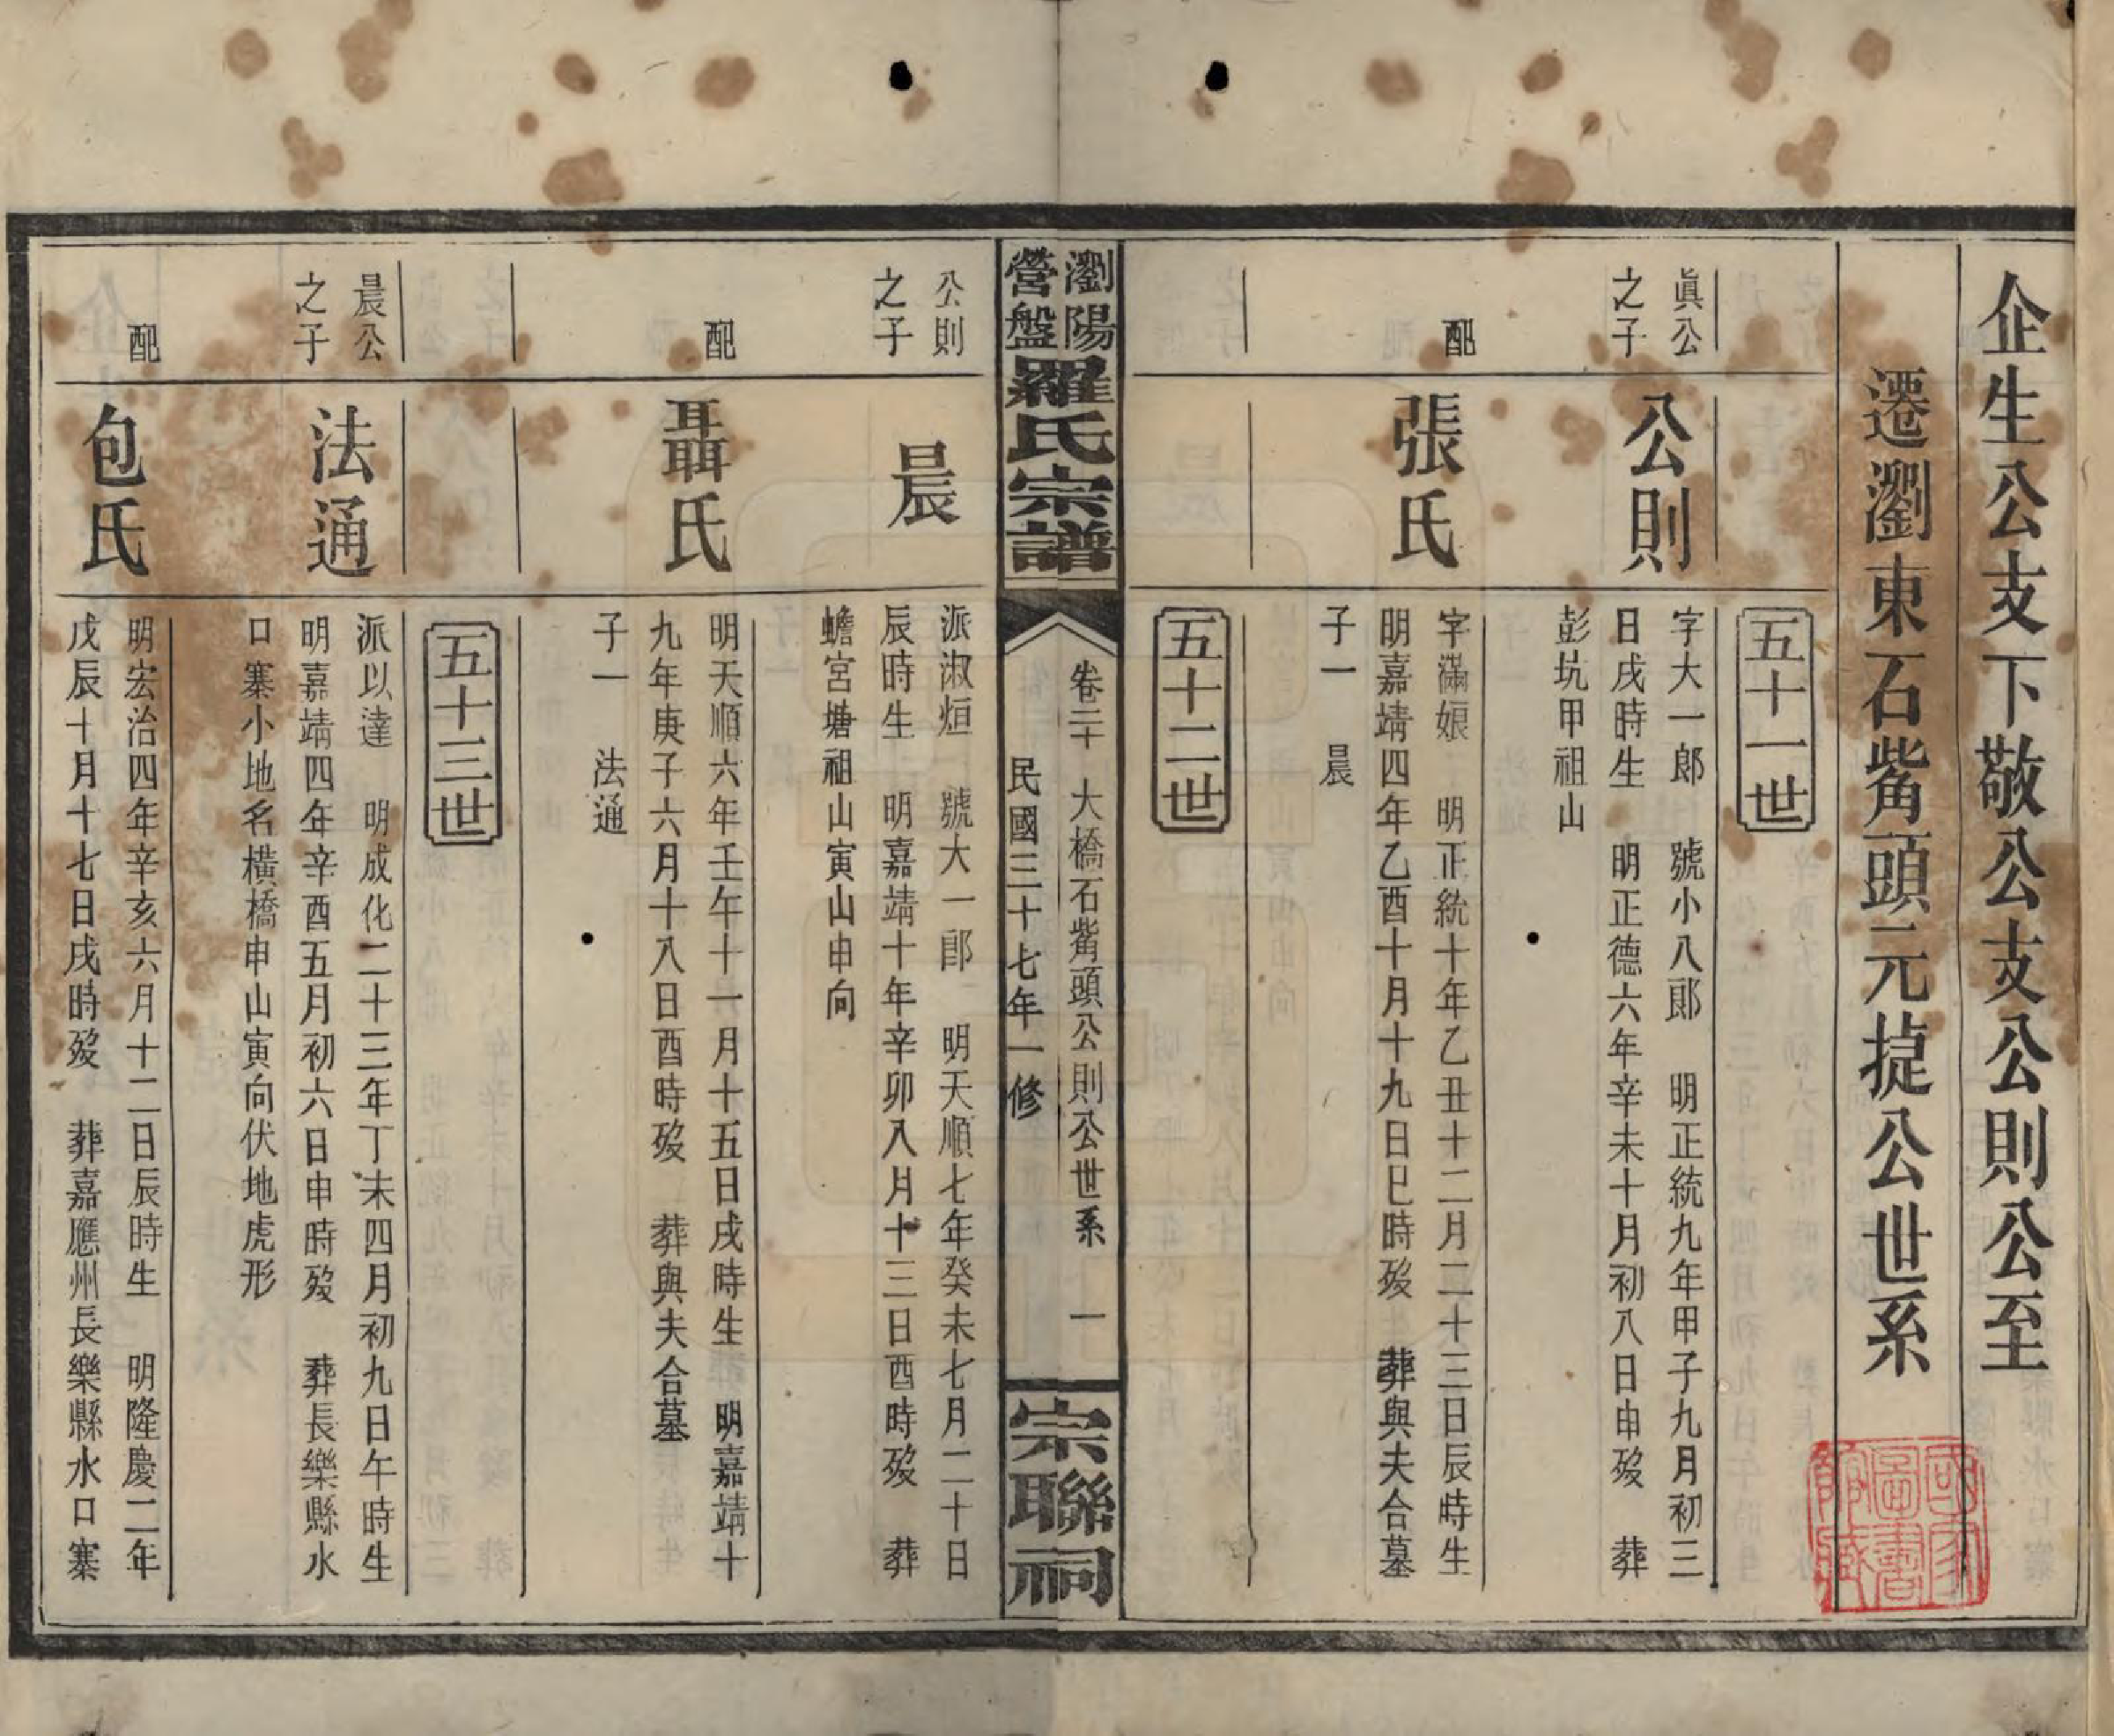 企生公支下敬公支公則公至
遷瀏東石觜頭元㨗公世系
五十一世
眞公
之子
公則
字大一郎 號小八郞 明正統九年甲子九月初三
日戌時生 明正德六年辛未十月初八日申歿 葬
彭坑甲祖山
配
張氏
字滿娘 明正統十年乙丑十二月二十三日辰時生
明嘉靖四年乙酉十月十九日巳時歿 葬與夫合墓
子一 晨
五十二世
瀏陽
營盤
羅氏宗譜
卷二十 大橋石觜頭公則公世系 一
民國三十七年一修
宗聯祠
公則
之子
晨
派淑烜 號大一郎 明天順七年癸未七月二十日
辰時生 明嘉靖十年辛卯八月十三日酉時歿 葬
蟾宮塘祖山寅山申向
配
聶氏
明天順六年壬午十一月十五日戌時生 明嘉靖十
九年庚子六月十八日酉時歿 葬與夫合墓
子一 法通
五十三世
晨公
之子
法通
派以達 明成化二十三年丁未四月初九日午時生
明嘉靖四年辛酉五月初六日申時歿 葬長樂縣水
口寨小地名橫橋申山寅向伏地虎形
配
包氏
明宏治四年辛亥六月十二日辰時生 明隆慶二年
戊辰十月十七日戌時歿 葬嘉應州長樂縣水口寨
國家
圖書
館藏